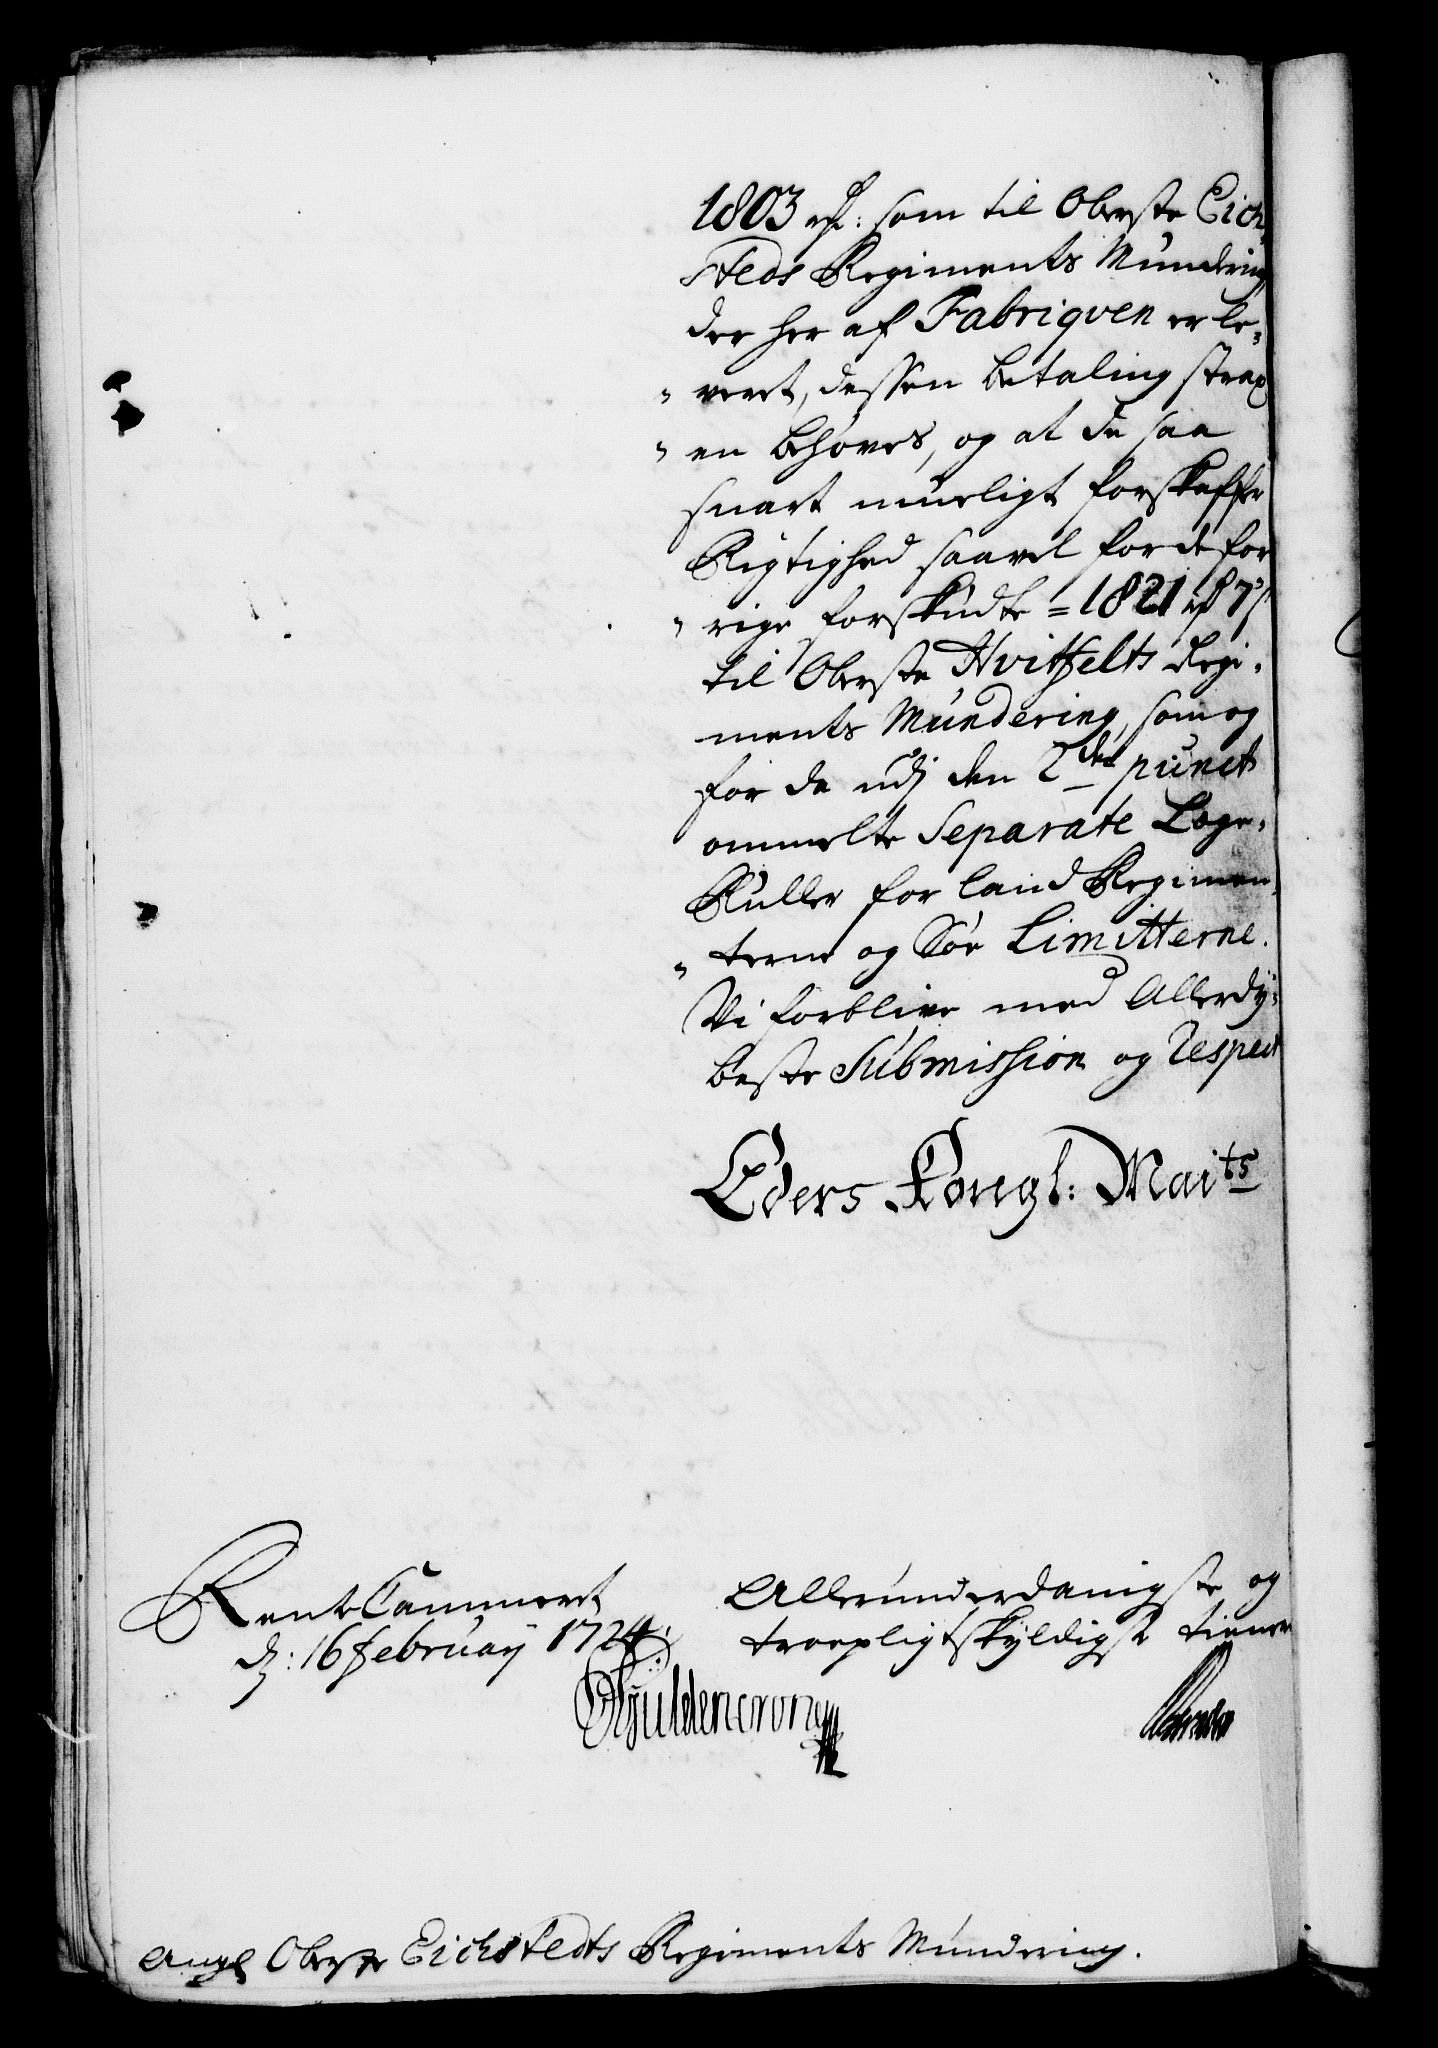 1803 rd: som til Oberste Eich,
steds Regiments Mundering
der her af Fabriqven er le=
" veret, dessen betaling strax
" en behøves, og at de saa
snart mueligt forskaffer
Rigtighed saavel for de for
" rige forskudte = 1821 rd 75 s
til Oberste Hvitfelts Regi=
ments Mundering, som og
for de udj den 2den punct
ommelte Separate Loge=
Ruller for land Regimen,
" terne og Søe Limitterne.
Vi forblive med Allerdy=
beste Submission og Respect
Eders Kongl: Maits
Rente Cammeret
d: 16 februarij 1724
Allerunderdanigste og
troepligtskyldigste tienere
Gyldencrone
Ang: Oberste Eichstedts Regiments Mundering.